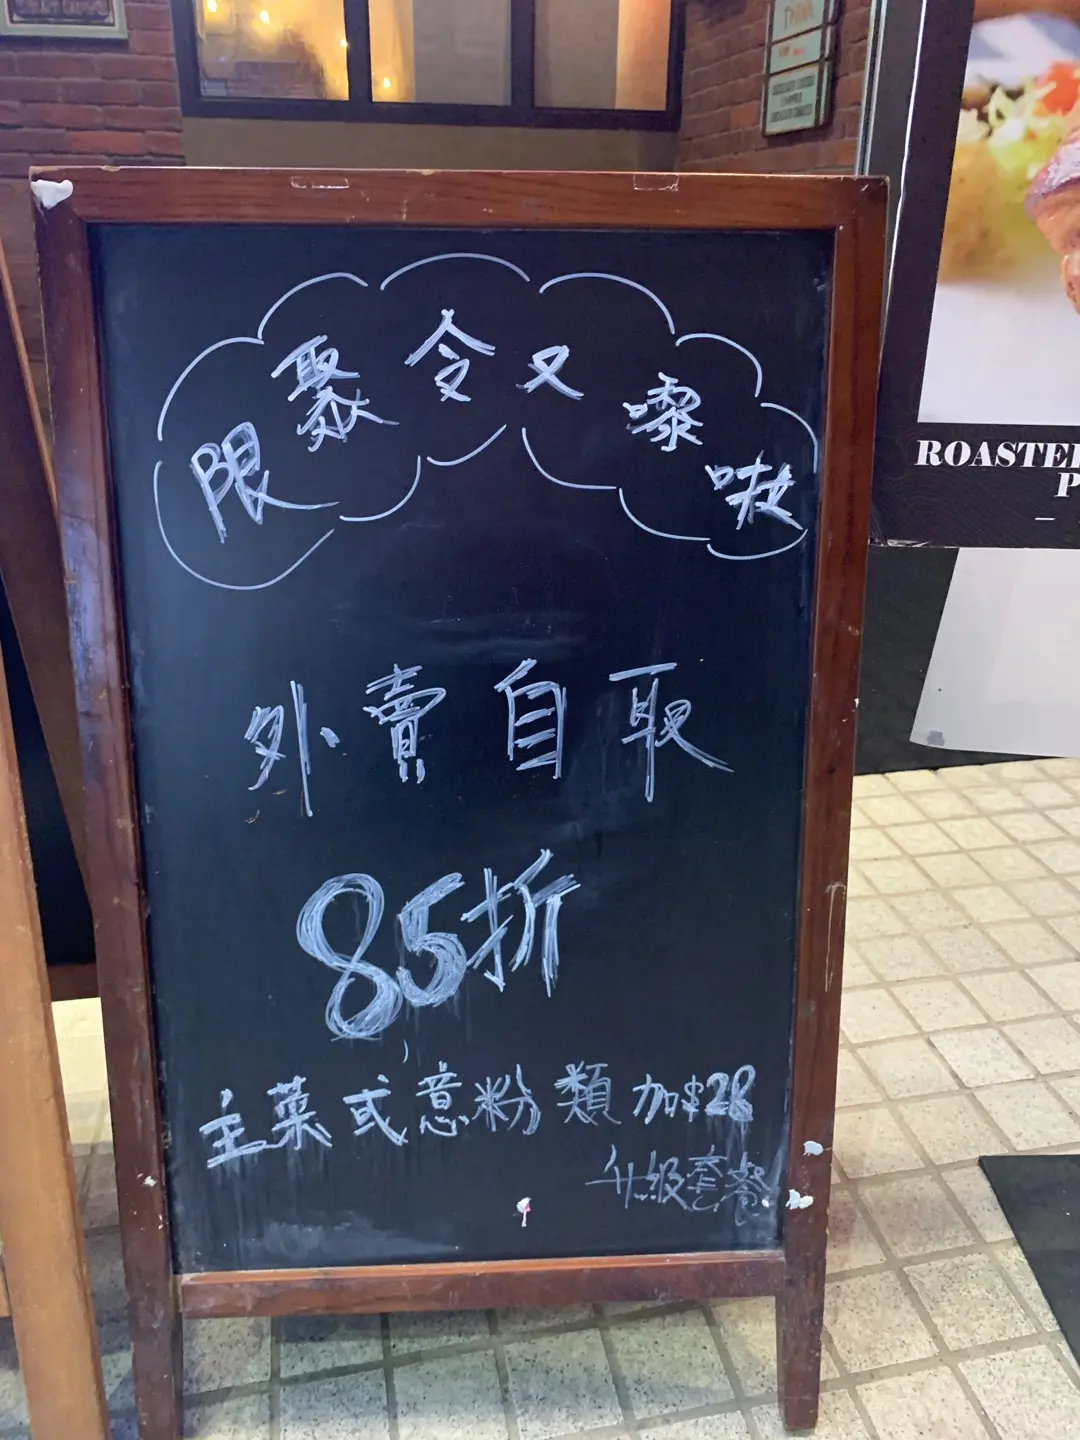 限聚令又嚟啦
外賣自取
85折
主菜或意粉類加$28
升級套餐
ROASTE
P